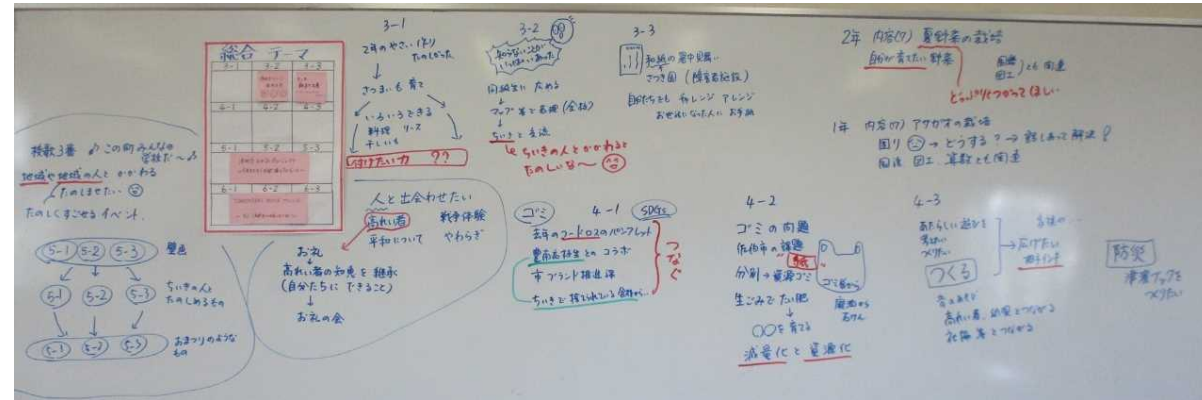 総合 テーマ
3-1 3-2 3-3
4-1 4-2 4-3
5-1 5-2 5-3
6-1 6-2 6-3
校歌3番 ♪この町みんなの
学校だ〜♪
地域や地域の人とかかわる
たのしませたい
たのしくすごせるイベント
5-1 5-2 5-3
5-1 5-2 5-3
ちいきの人と
たのしめるもの
5-1 5-2 5-3
おまつりのような
もの
3-1
2年のやさい作り
たのしかった
↓
さつまいも育て
↓
いろいろできる
料理 リース
干しいも
付けたい力 ??
人と出会わせたい
高れい者 戦争体験
平和について やわらぎ
お礼
↓
高れい者の知恵を継承
(自分たちにできること)
↓
お礼の会
3-2
知らないことが
いっぱいあった
同級生に広める
↓
マップ等で表現(全校)
↓
ちいきと交流
ちいきの人とかかわると
たのしいな〜
3-3
さつき園(障害者施設)
自分たちでも チャレンジ アレンジ
お世話になった人に お手紙
ゴミ 4-1 SDGs
去年のフードロスのパンフレット
豊南高校生とのコラボ
市ブランド推進課
ちいきで捨てられている食材から…
つなぐ
4-2
ゴミの問題
佐伯市の課題
"紙"
分別→資源ゴミ
生ごみでたい肥
↓
○○を育てる
減量化と資源化
廃油から
石けん
4-3
あたらしい遊びを
つくりたい
つくる
広げたい
高れい者、幼児とつながる
とつながる
防災
津波マップを
つくりたい
2年 内容(7) 夏野菜の栽培
自分が育てたい野菜
国語
図工 とも関連
どっぷりつかってほしい
1年 内容(7) アサガオの栽培
困り → どうする?→ 話しあって解決
国語 図工 算数とも関連